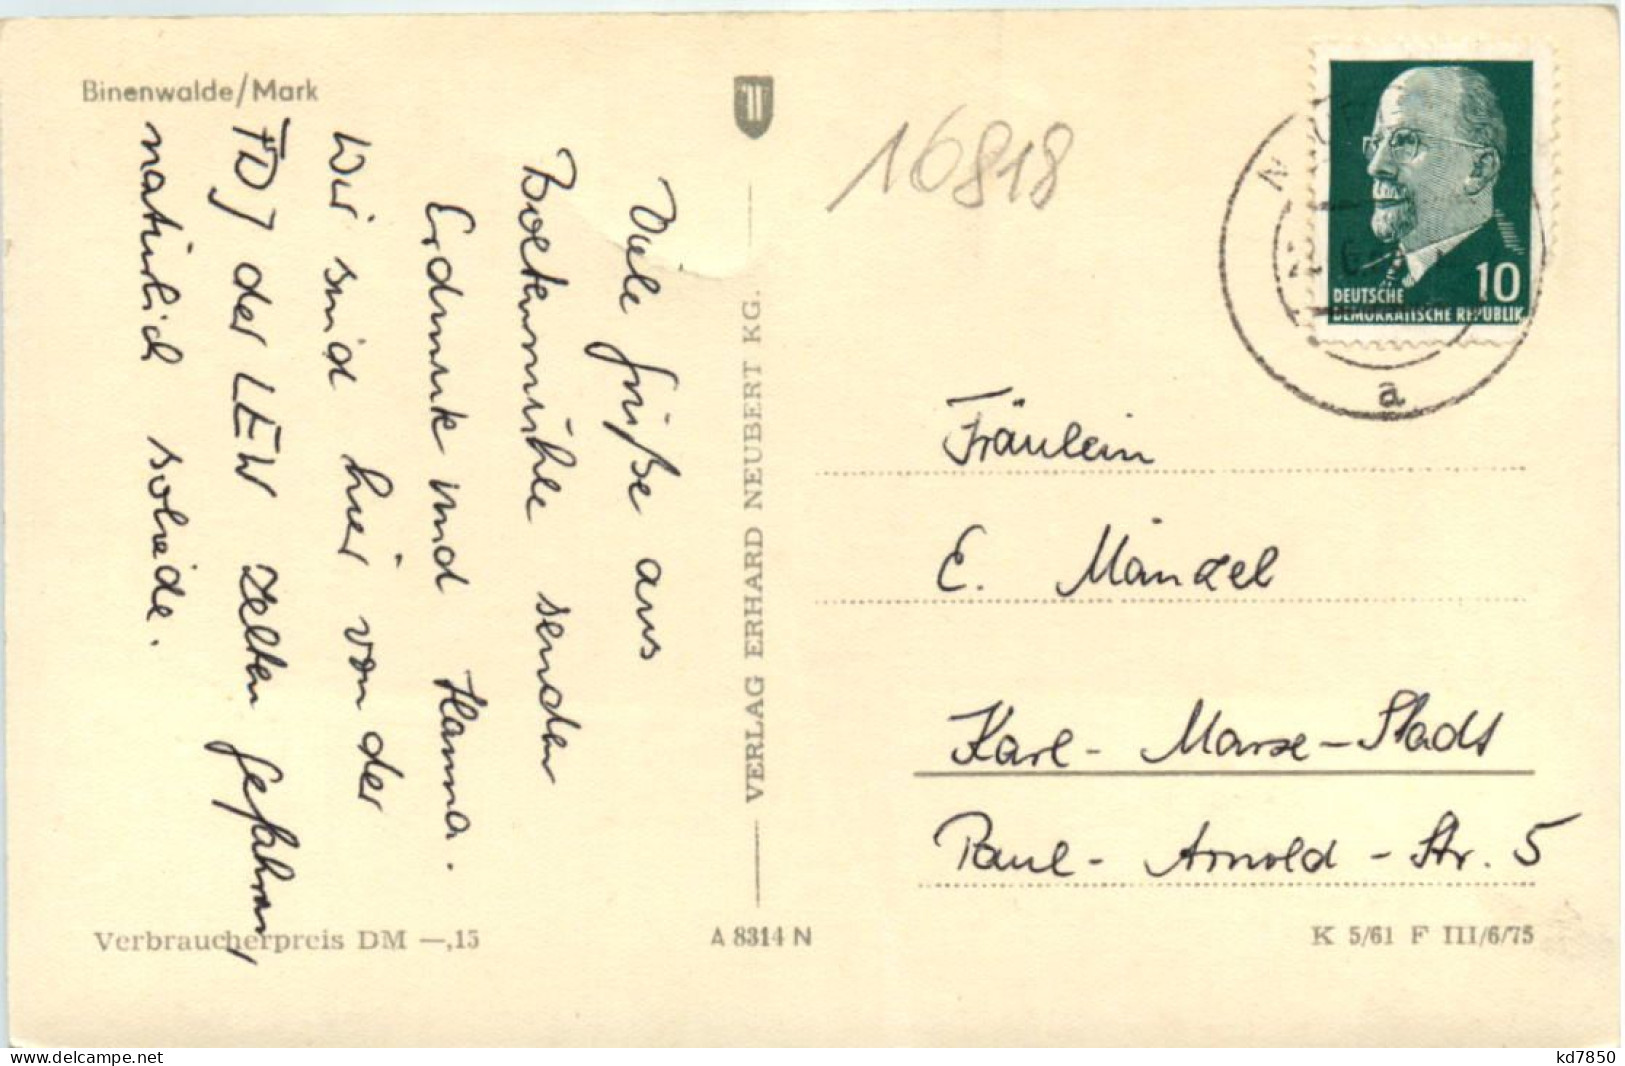 Binenwalde/Mark
Viele Grüße aus
Boltenmühle senden
Erdmute und Hanna.
Wir sind hier von der
FDJ der LEW zelten gefahren,
natürlich solide.
VERLAG ERHARD NEUBERT KG.
16818
10
DEUTSCHE
DEMOKRATISCHE REPUBLIK
a
Fräulein
E. Mänzel
Karl-Marx-Stadt
Paul-Arnold-Str. 5
Verbraucherpreis DM —,15
A 8314 N
K 5/61 F III/6/75
www.delcampe.net
kd7850